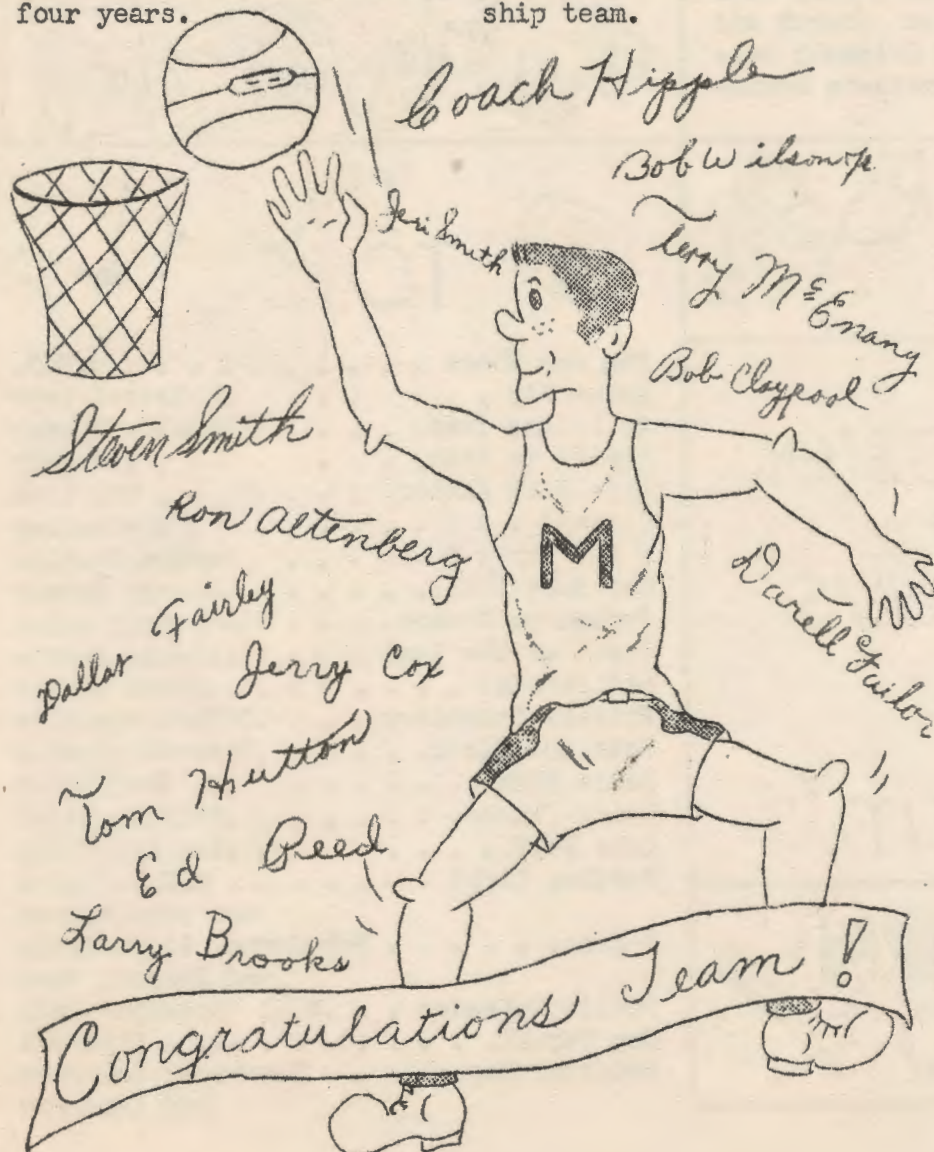 four years. ship team.
Coach Hipple
Bob Wilson jr.
Jeri Smith
Terry McEnany
Bob Claypool
Steven Smith
Ron Altenberg
M
Darell Failor
Dallas Fairley
Jerry Cox
Tom Hutton
Ed Reed
Larry Brooks
Congratulations Team!